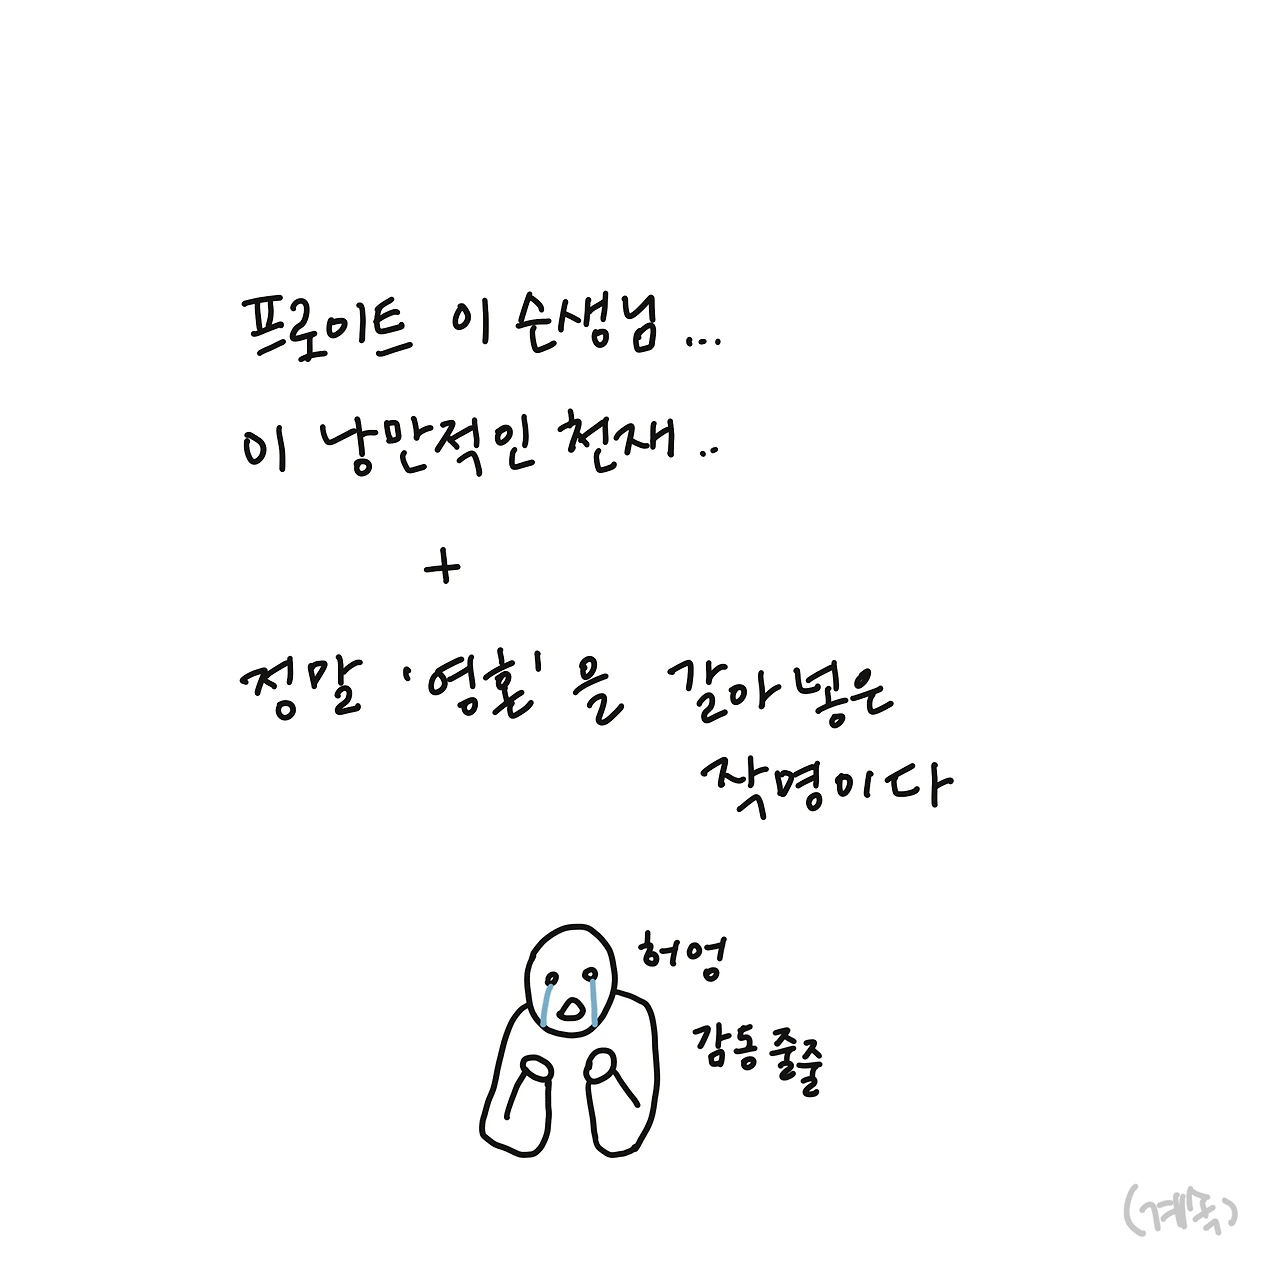 프로이트 이 슨생님...
이 낭만적인 천재..
+
정말 '영혼'을 갈아 넣은
작명이다
허엉
감동 줄줄
(계속)